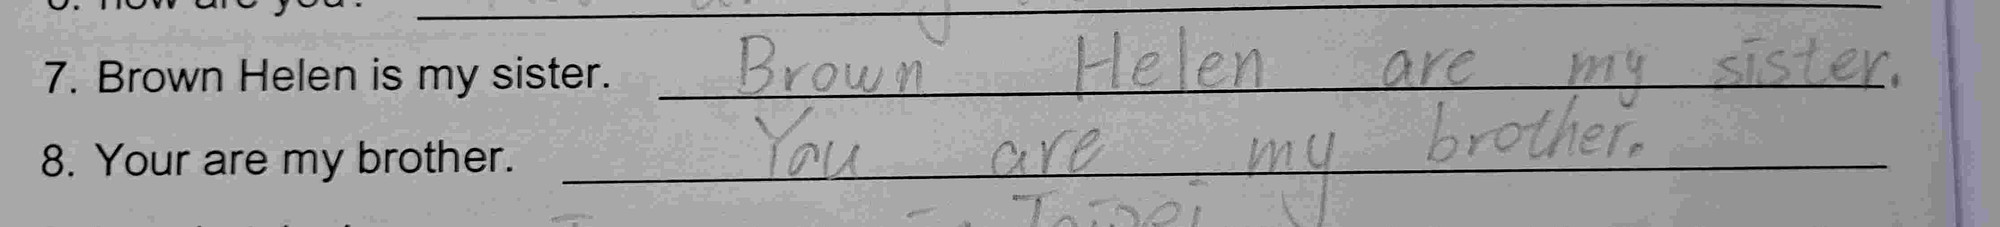 how are you?
7. Brown Helen is my sister. Brown Helen are my sister.
8. Your are my brother. You are my brother.
Taipei